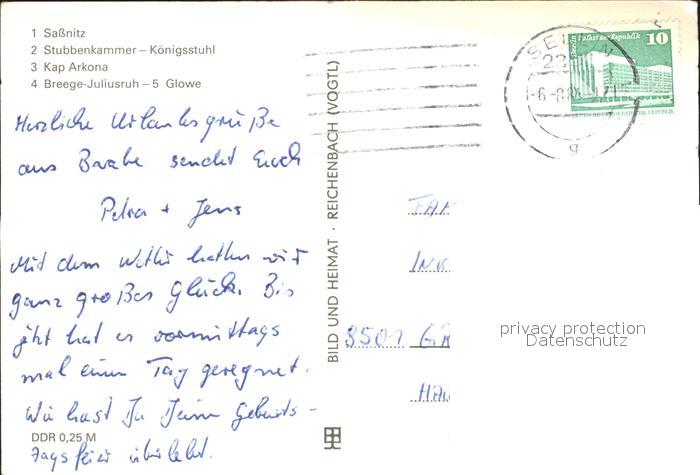 1 Saßnitz
2 Stubbenkammer – Königsstuhl
3 Kap Arkona
4 Breege-Juliusruh – 5 Glowe
Herzliche Urlaubsgrüße
aus Baabe sendet Euch
Petra + Jens
Mit dem Wetter hatten wir
ganz großes Glück. Bis
jetzt hat es vormittags
mal einen Tag geregnet.
Wie hast Du Deine Geburts-
tagsfeier überlebt.
DDR 0,25 M
BILD UND HEIMAT · REICHENBACH (VOGTL)
Palast der Republik
10
SELLIN
8501
privacy protection
Datenschutz